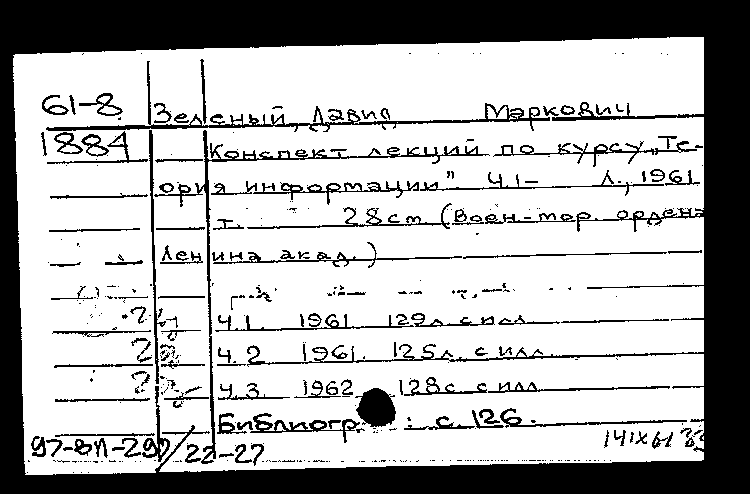 61-8 Зеленый, Давид Маркович
1884 Конспект лекций по курсу „Те-
ория информации" Ч.1- Л., 1961
т. 28см (Воен-мор. ордена
Ленина акад.)
2 Ч.1. 1961 129л. с илл.
2 Ч.2 1961. 125л. с илл.
2 Ч.3. 1962 128с. с илл.
Библиогр : с. 126.
97-8П-290/22-27 141X61